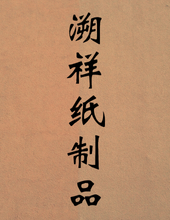 溯祥纸制品